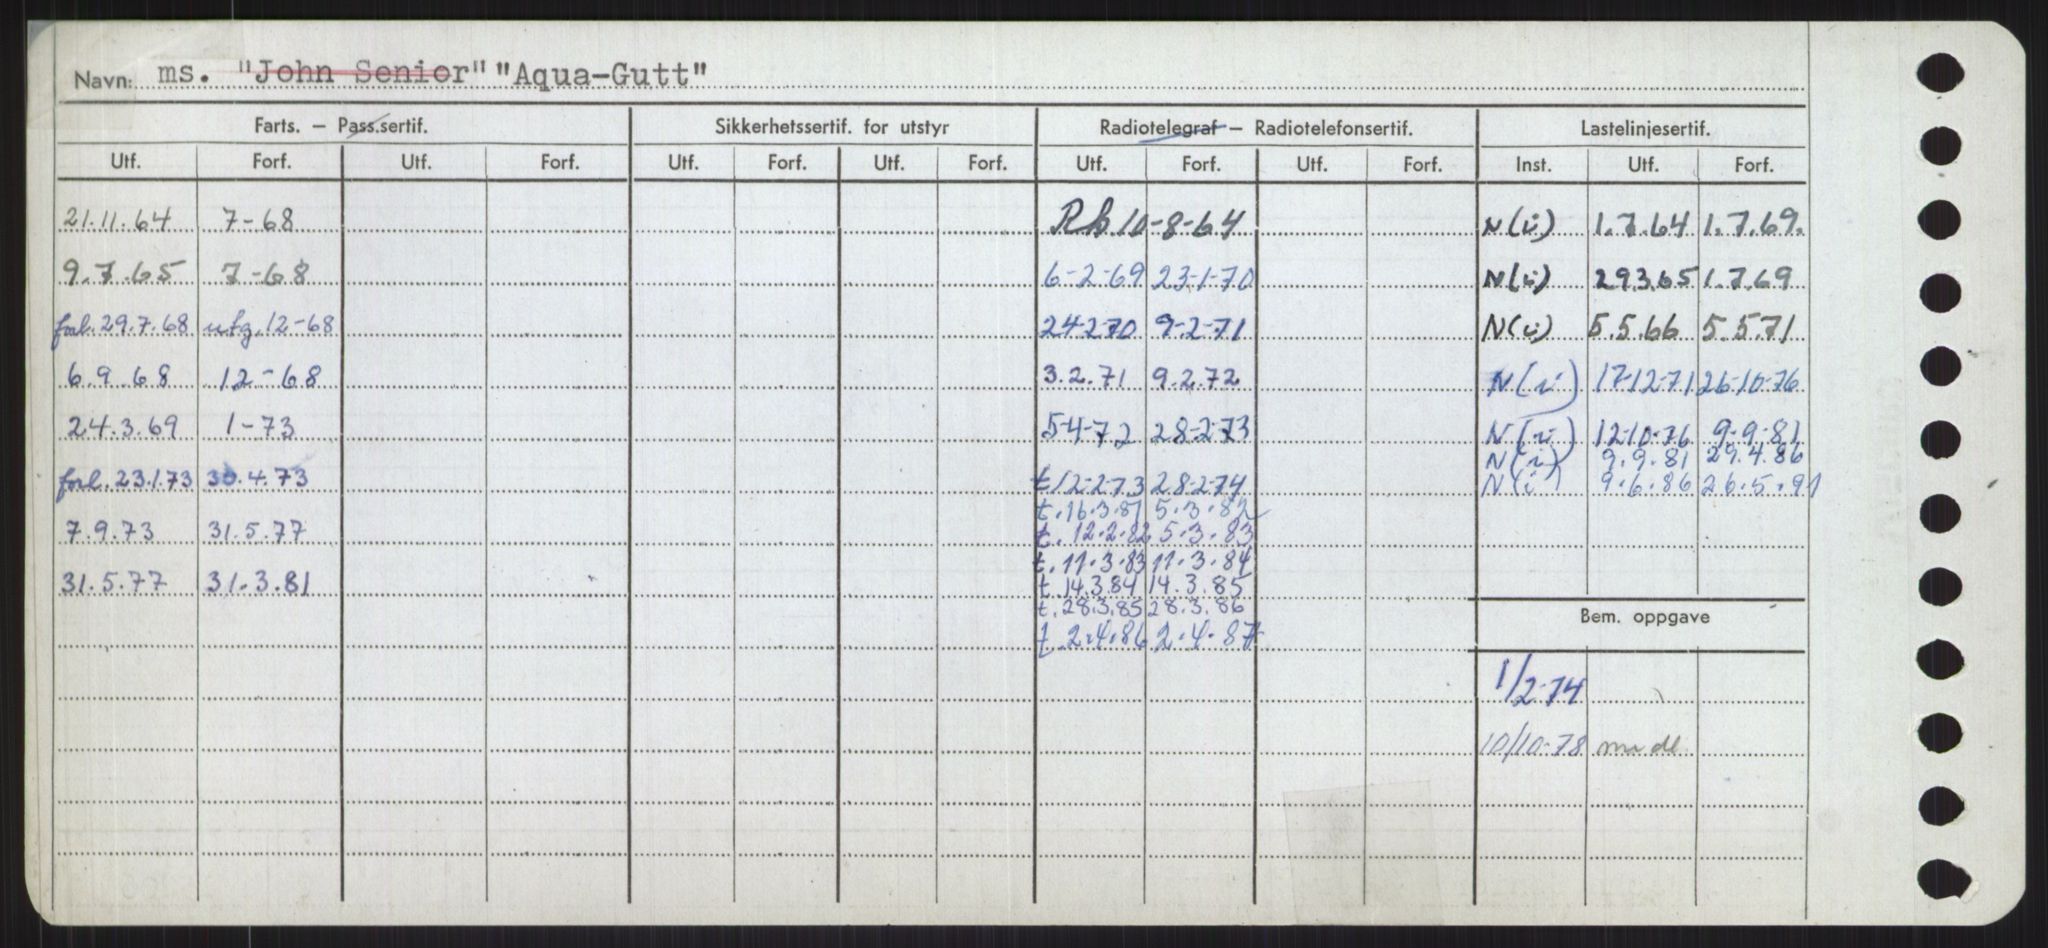 Navn: ms. "John Senior" "Aqua-Gutt"
Farts. – Pass.sertif. Sikkerhetssertif. for utstyr Radiotelegraf – Radiotelefonsertif. Lastelinjesertif.
Utf. Forf. Utf. Forf. Utf. Forf. Utf. Forf. Utf. Forf. Utf. Forf. Inst. Utf. Forf.
21.11.64 7-68 10-8-64 N(i) 1.7.64 1.7.69.
9.7.65 7-68 6-2-69 23-1-70 N(i) 29.3.65 1.7.69
forl. 29.7.68 utg. 12-68 24-2-70 9-2-71 N(i) 5.5.66 5.5.71
6.9.68 12-68 3.2.71 9.2.72 N(i) 17-12-71 26-10-76
24.3.69 1-73 5-4-72 28-2-73 N(i) 12-10-76 9-9-81
N(i) 9.9.81 29.4.86
forl. 23.1.73 30.4.73 t. 12-2-73 28-2-74 N(i) 9.6.86 26.5.91
t. 16.3.81 5.3.82
7.9.73 31.5.77 t. 12.2.82 5.3.83
t. 11.3.83 11.3.84
31.5.77 31.3.81 t. 14.3.84 14.3.85
t. 28.3.85 28.3.86
t. 2.4.86 2.4.87
Bem. oppgave
1/2-74
10/10-78